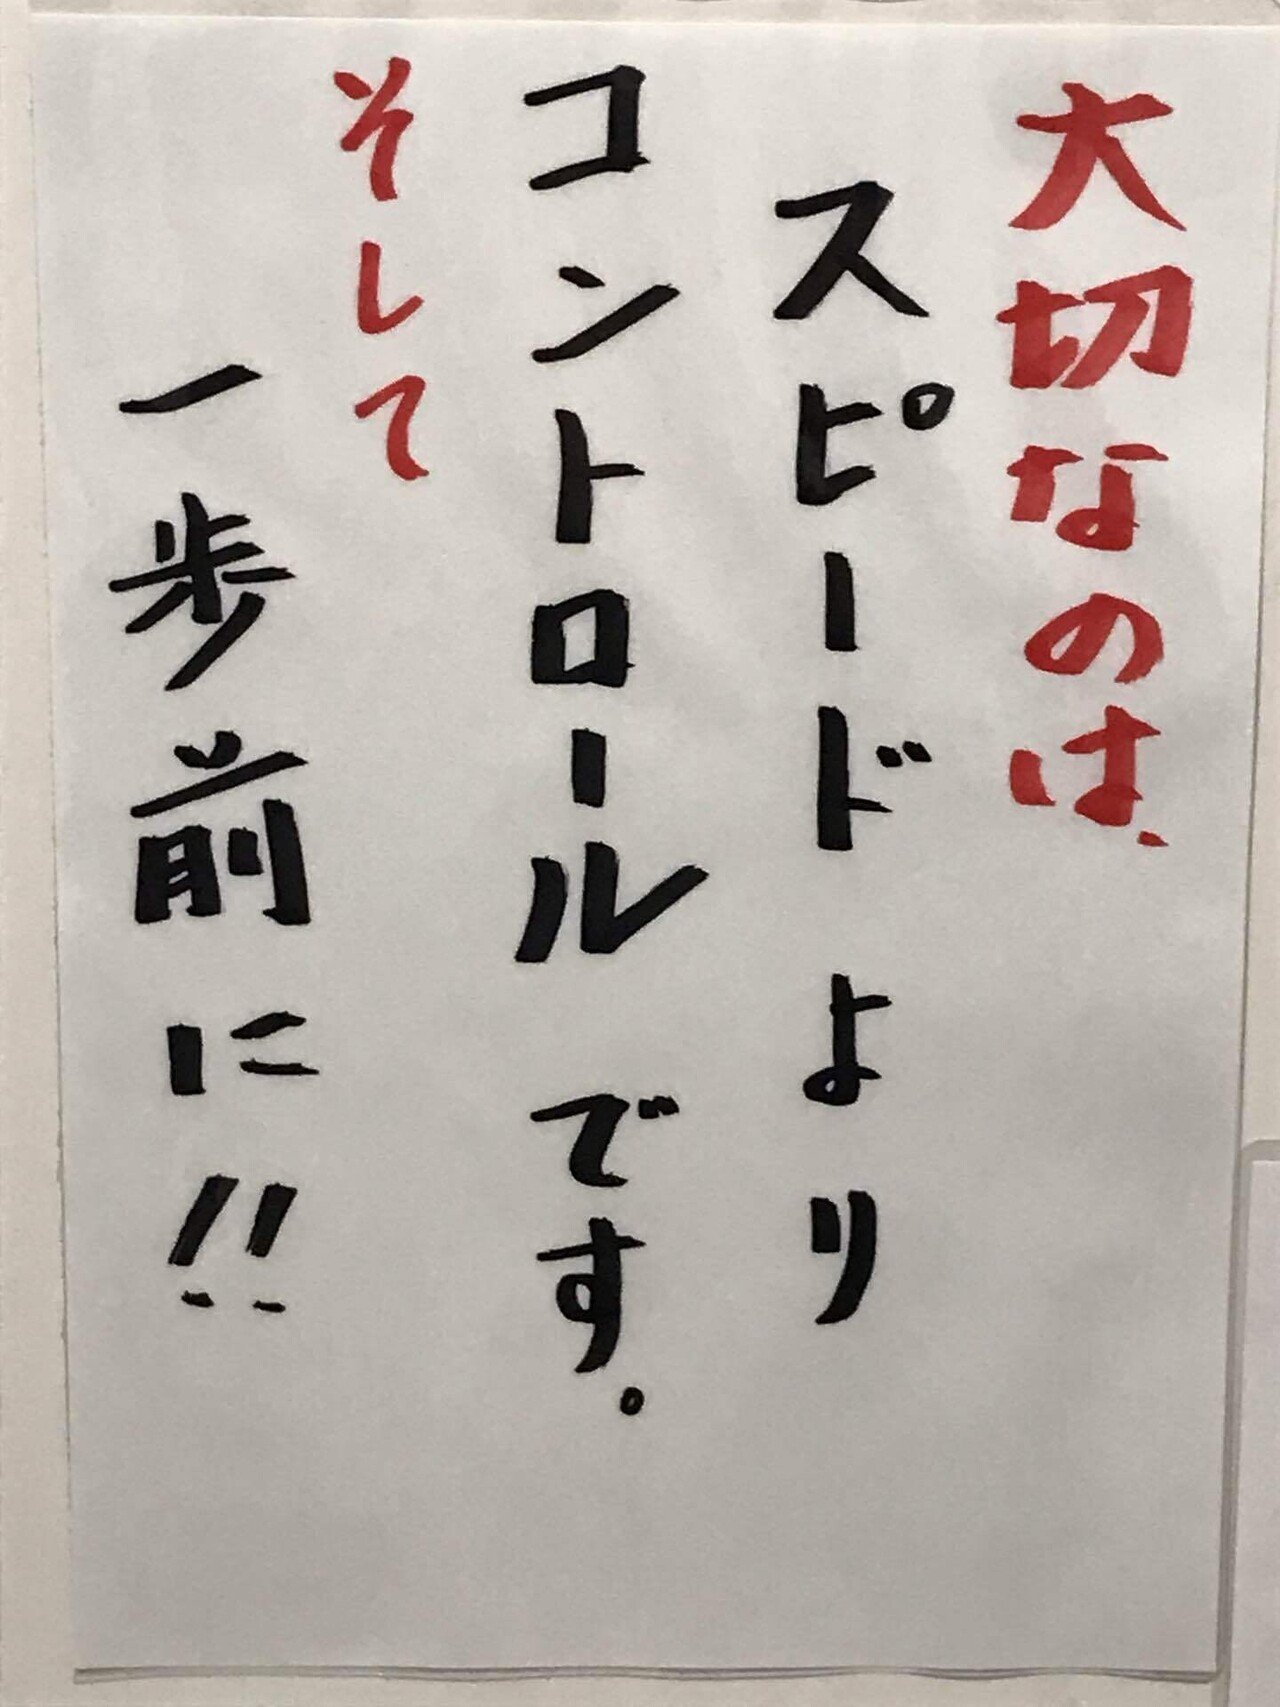 大切なのは、
スピードより
コントロールです。
そして
一歩前に!!